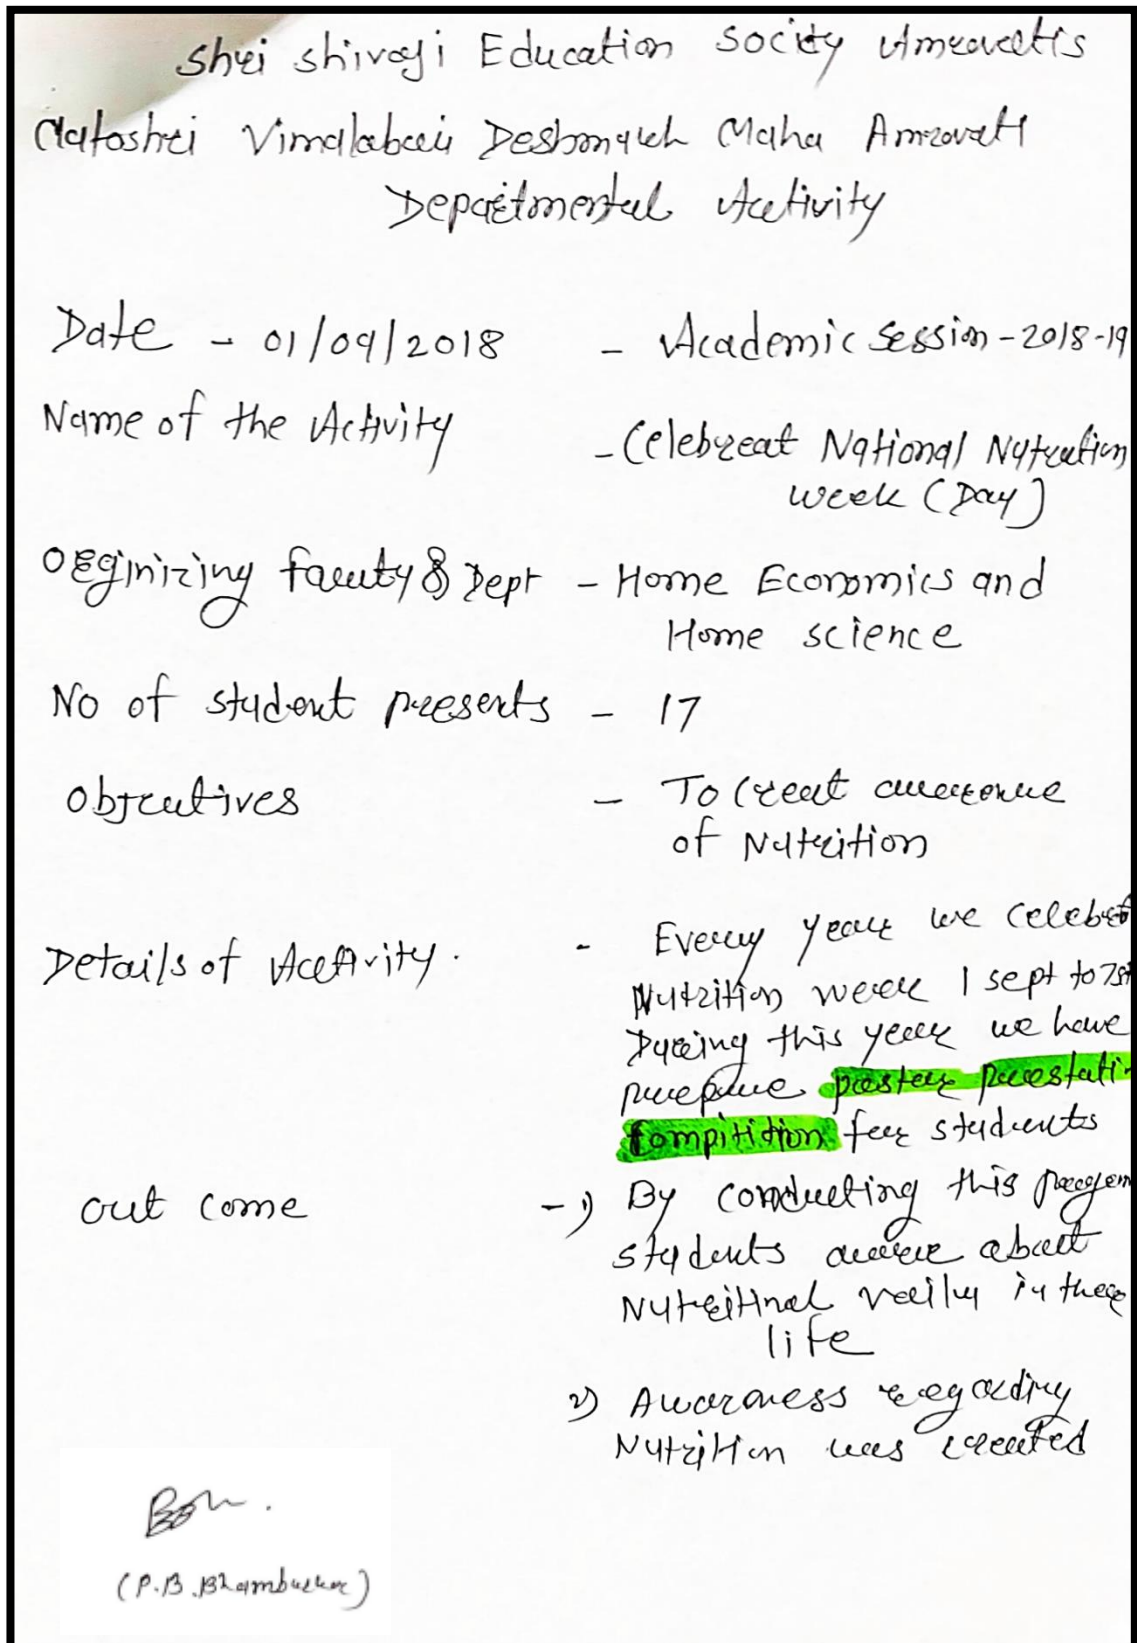 Shri Shivaji Education Socity Amravatis
Matoshri Vimalabai Deshmukh Maha Amravati
Departmental Activity
Date - 01/09/2018 - Academic Session - 2018-19
Name of the Activity - Celebreat National Nutration
week (Day)
Orginizing faculty & Dept - Home Economics and
Home science
No of student presents - 17
Objectives - To Creat
of Nutrition
Details of Activity. - Every year we celebrat
Nutrition week 1 sept to 7st
During this year we have
prepare poster
Compitition for students
out come - 1) By conducting this progem
students aware about
Nutritinal in
life
2) Awarness regarding
Nutrition was created
(P.B. Bhamburkar)